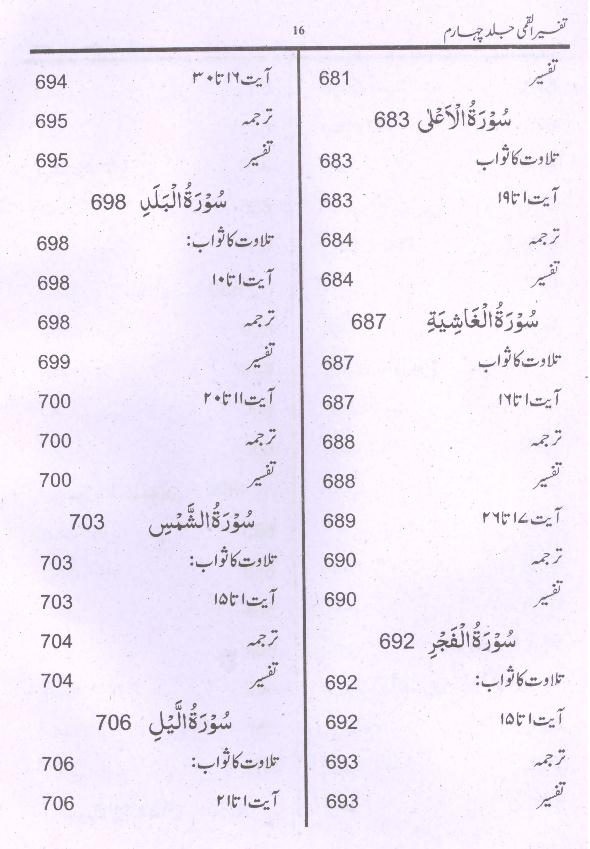 تفسیر القمی جلد چہارم 16
تفسیر 681
سُوْرَةُ الْاَعْلٰى 683
تلاوت کا ثواب 683
آیت ۱ تا ۱۹ 683
ترجمہ 684
تفسیر 684
سُوْرَةُ الْغَاشِيَةِ 687
تلاوت کا ثواب 687
آیت ۱ تا ۱۶ 687
ترجمہ 688
تفسیر 688
آیت ۱۷ تا ۲۶ 689
ترجمہ 690
تفسیر 690
سُوْرَةُ الْفَجْرِ 692
تلاوت کا ثواب: 692
آیت ۱ تا ۱۵ 692
ترجمہ 693
تفسیر 693
آیت ۱۶ تا ۳۰ 694
ترجمہ 695
تفسیر 695
سُوْرَةُ الْبَلَدِ 698
تلاوت کا ثواب: 698
آیت ۱ تا ۱۰ 698
ترجمہ 698
تفسیر 699
آیت ۱۱ تا ۲۰ 700
ترجمہ 700
تفسیر 700
سُوْرَةُ الشَّمْسِ 703
تلاوت کا ثواب: 703
آیت ۱ تا ۱۵ 703
ترجمہ 704
تفسیر 704
سُوْرَةُ الَّيْلِ 706
تلاوت کا ثواب: 706
آیت ۱ تا ۲۱ 706